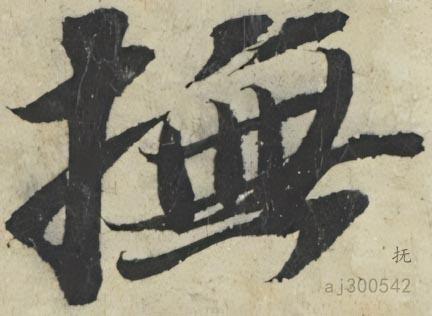 撫
抚
aj300542